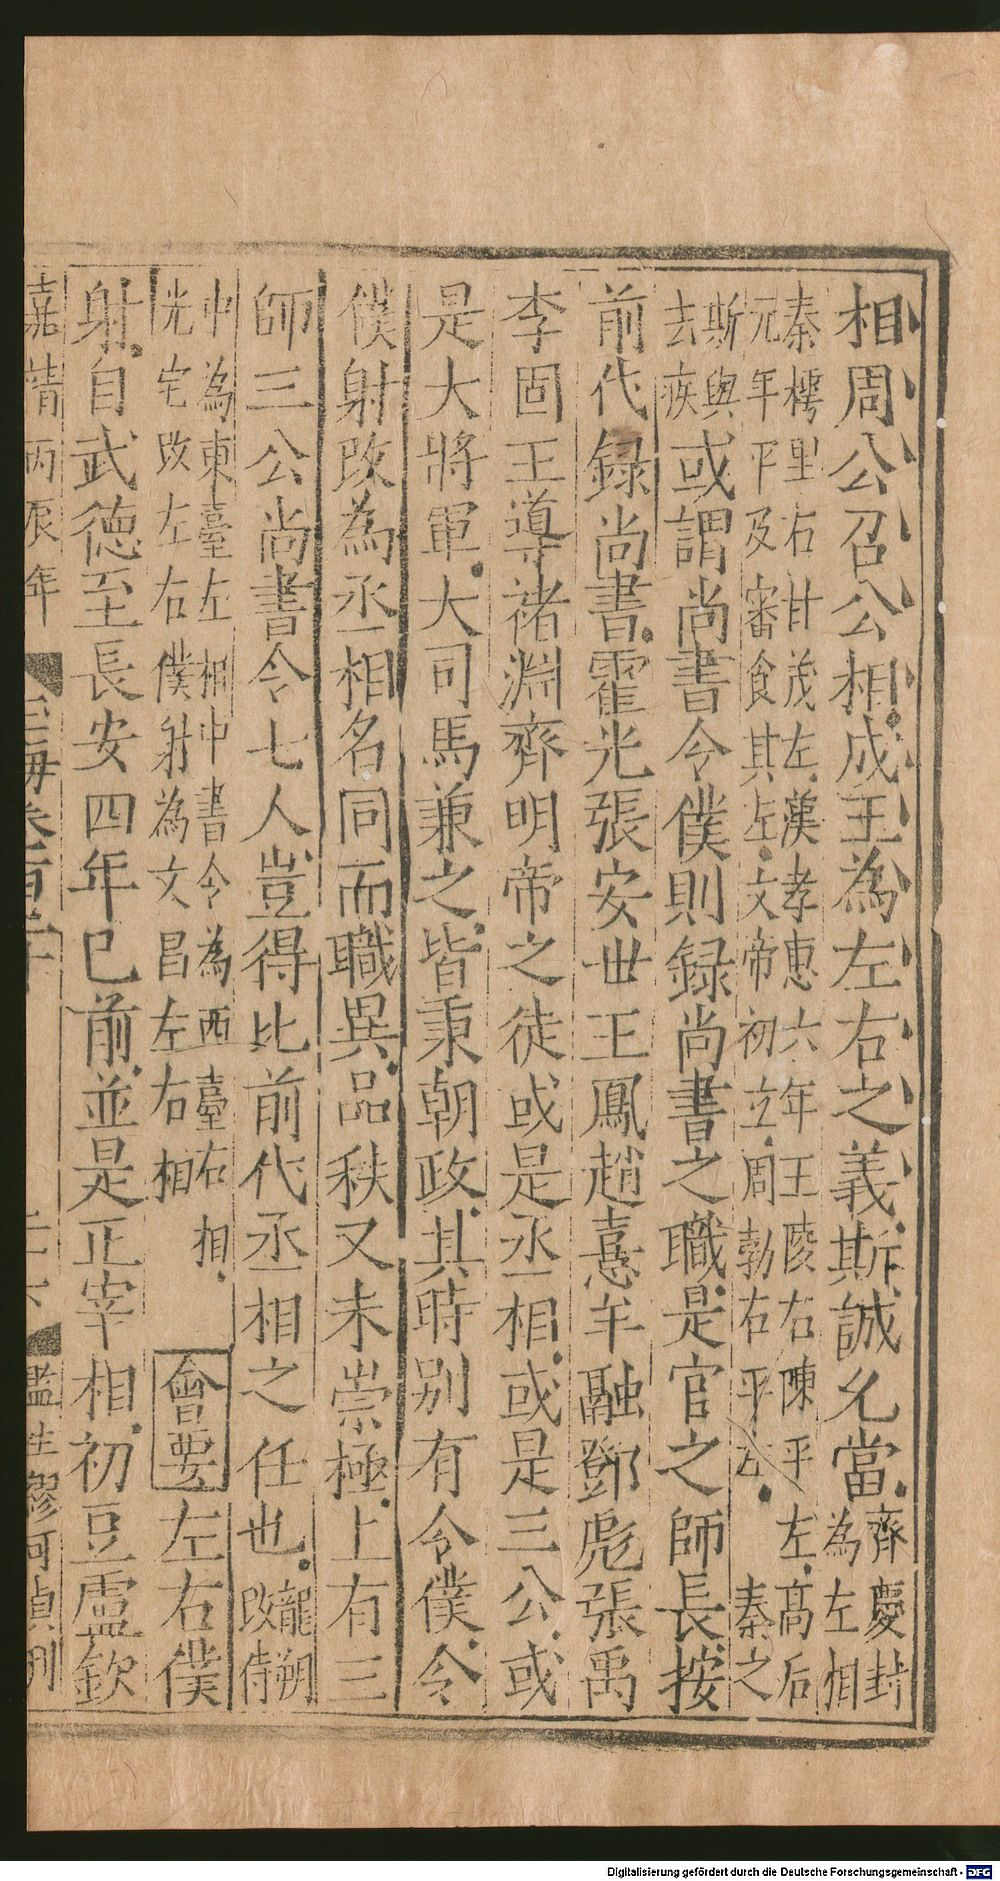 相周公召公相成王為左右之義斯誠允當齊慶封為左相
秦樗里右甘茂左漢孝惠六年王陵右陳平左高后
元年平及審食其左文帝初立周勃右平左秦之
斯與去疾或謂尚書令僕則録尚書之職是官之師長按
前代録尚書霍光張安世王鳳趙憙牟融鄧彪張禹
李固王導褚淵齊明帝之徒或是丞相或是三公或
是大將軍大司馬兼之皆秉朝政其時别有令僕令
僕射改為丞相名同而職異品秩又未崇極上有三
師三公尚書令七人豈得比前代丞相之任也龍朔改侍
中為東臺左相中書令為西臺右相
光宅改左右僕射為文昌左右相
會要左右僕
射自武德至長安四年已前並是正宰相初豆盧欽
嘉靖丙辰年 玉海卷一百二十 二十六 監生繆可貞刊
Digitalisierung gefördert durch die Deutsche Forschungsgemeinschaft - DFG